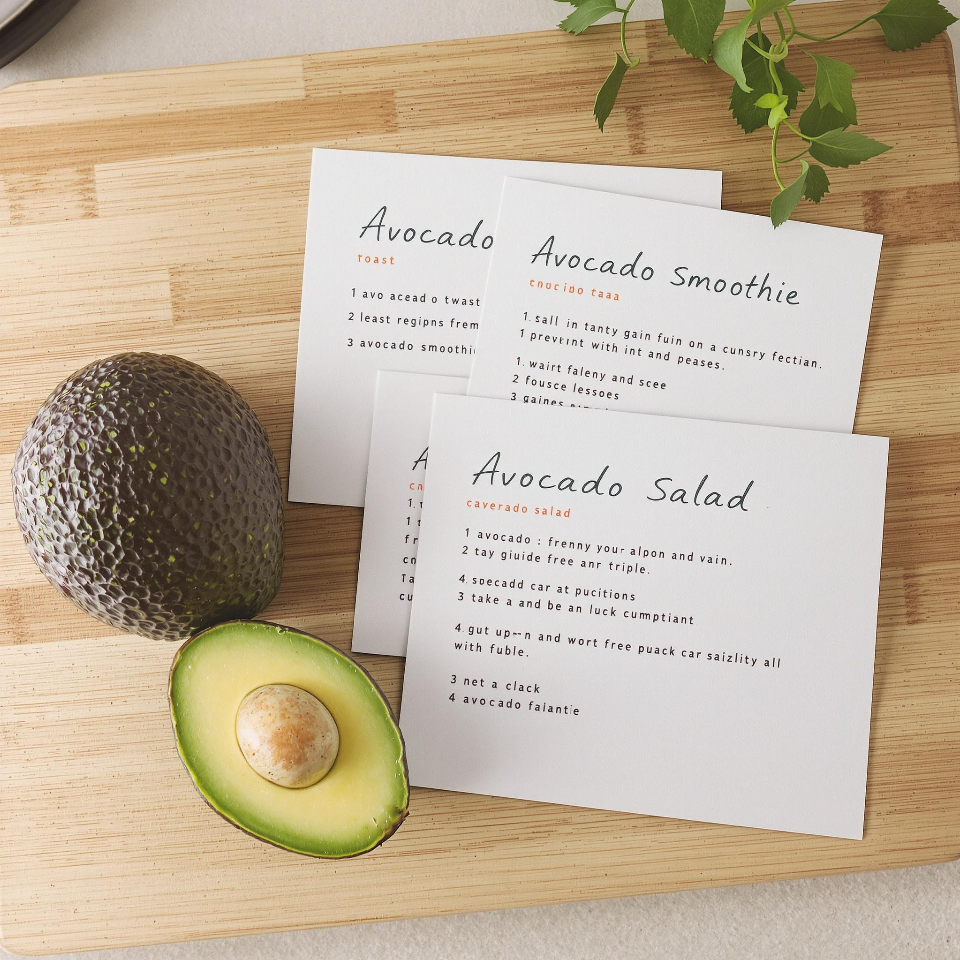 Avocado
Toast
1 avo acead o twast
2 least regipns frem
3 avocado smoothi
Avocado Smoothie
1. sall in tanty gain fuin on a cunsry fectian.
1 prevent with int and peases.
1. wairt faleny and scee
2 fousce lessoes
3 gaines
Avocado Salad
caverado salad
1 avocado : frenny your alpon and vain.
2 tay giuide free anr triple.
4. soecadd car at pucitions
3 take a and be an luck cumptiant
4. gut and wort free puack car saizlity all
with fuble.
3 net a clack
4 avocado faiantie